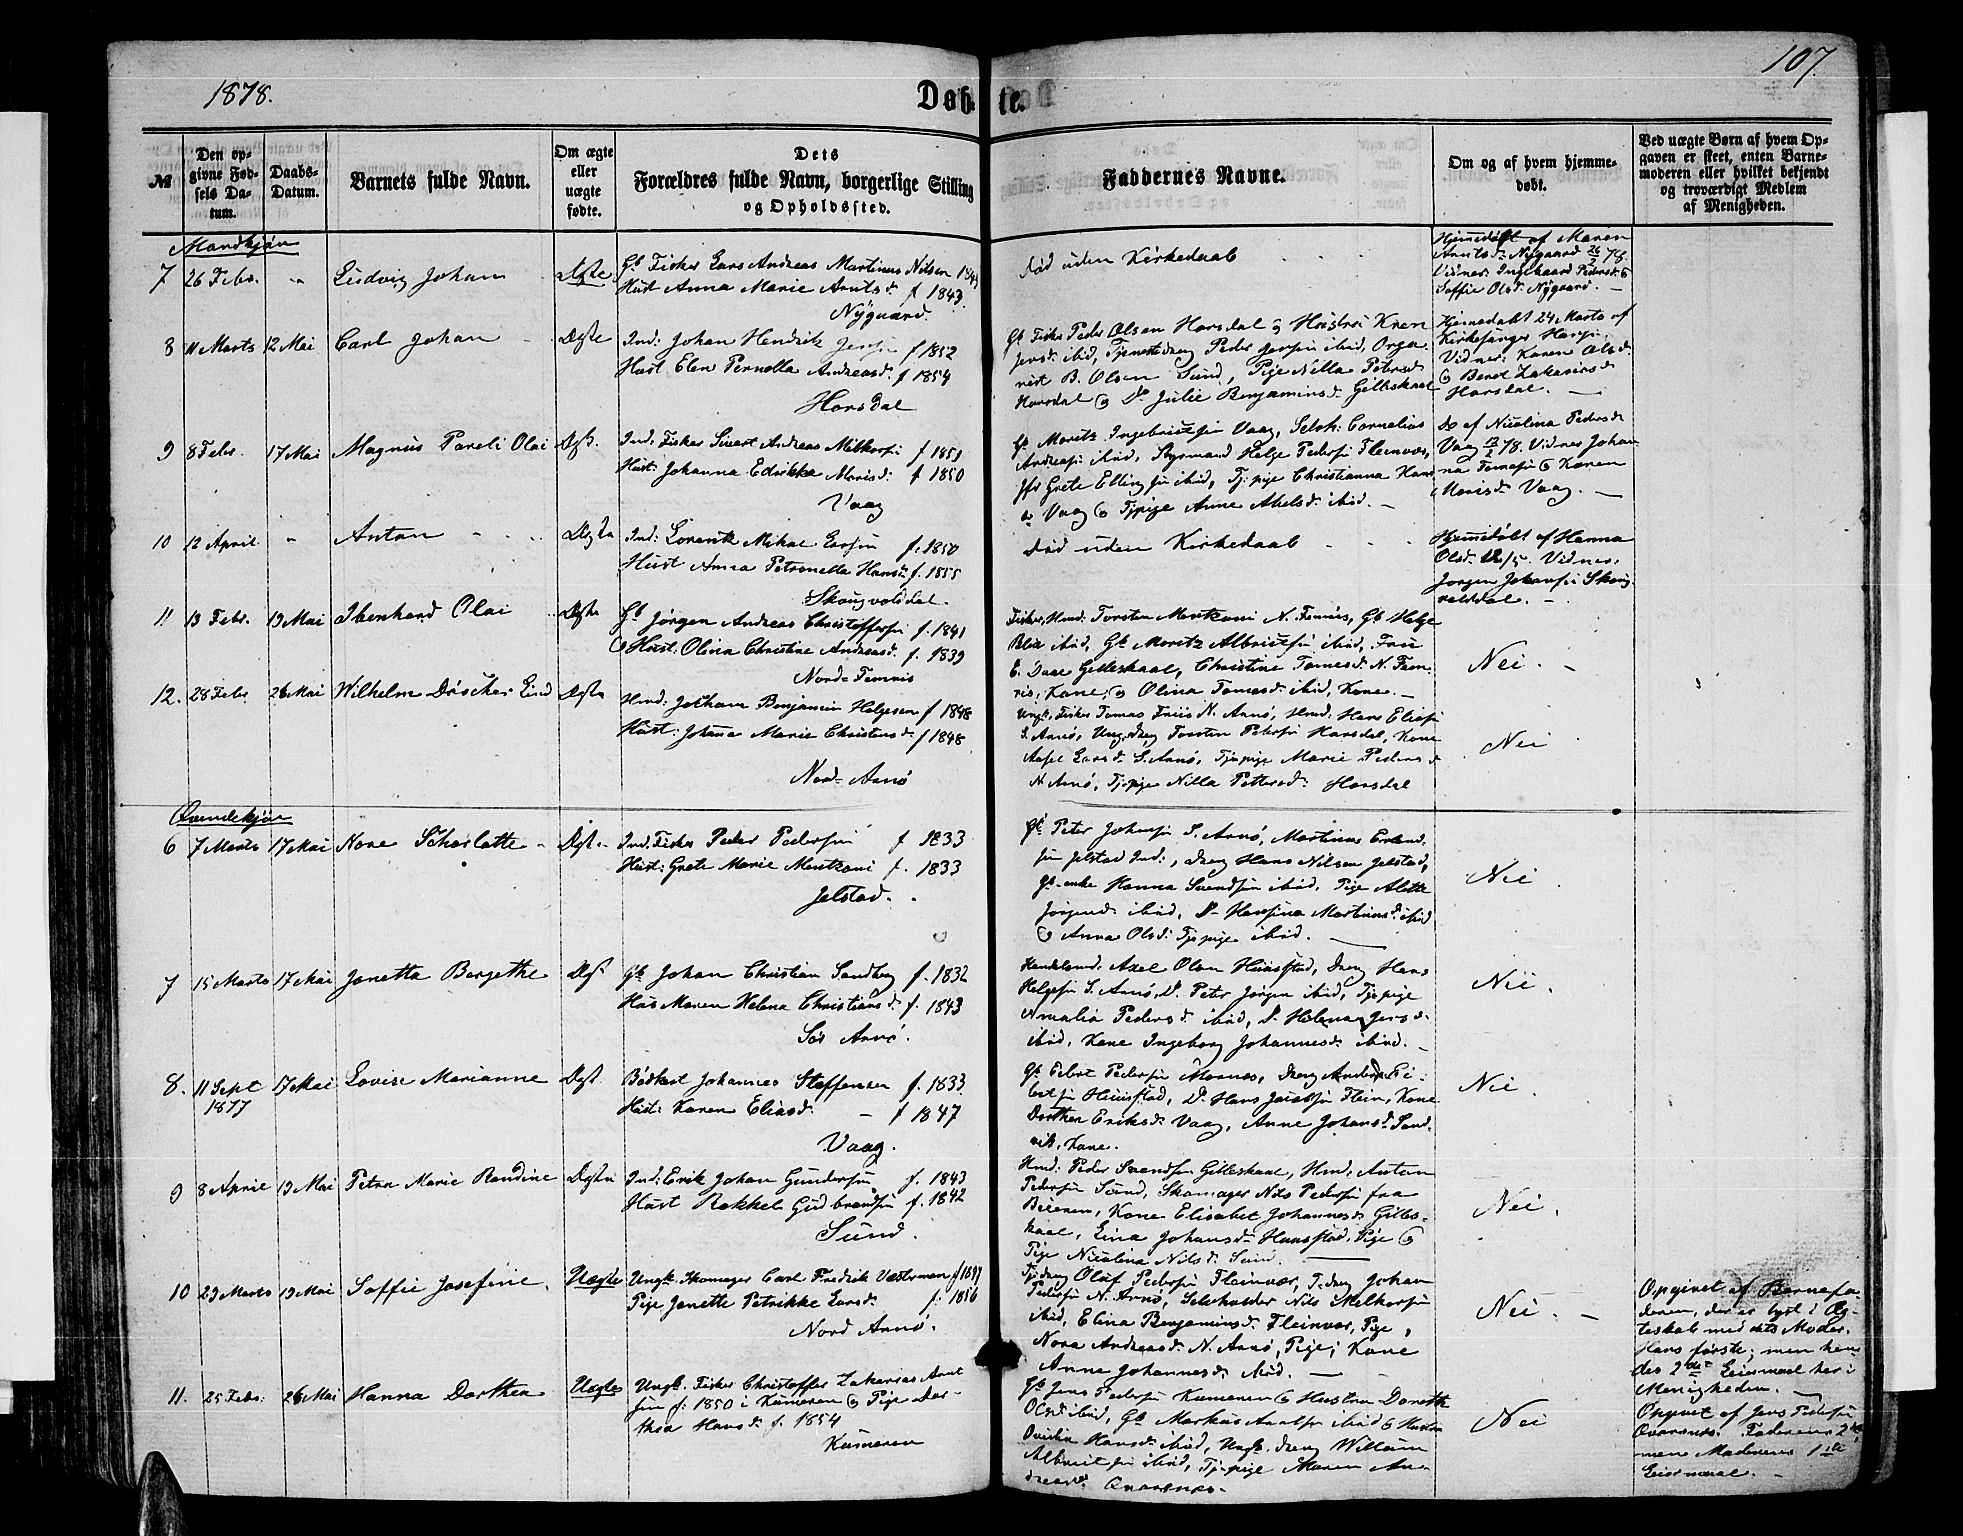 1878.
Døbte.
107.
№
Den opgivne Fødsels Datum.
Daabs-Datum.
Barnets fulde Navn.
Om ægte eller uægte fødte.
Dets Forældres fulde Navn, borgerlige Stilling og Opholdssted.
Faddernes Navne.
Om og af hvem hjemmedøbt.
Ved uægte Børn af hvem Opgaven er skeet, enten Barnemoderen eller hvilket bekjendt og troværdigt Medlem af Menigheden.
Mandkjøn
7 26 Febr. " Ludvig Johan Ægte
Gb Fisker Lars Andreas Martinus Nilsen
Hust Anna Marie Arntsd. f 1843.
Nÿgaard.
død uden Kirkedaab
Hjemedøbt af Maren
Arntsd. Nygaard 26/2 78.
Vidner: Ingeborg Pedersd. &
Soffie Olsd. Nÿgaard. —
8 11 Marts 12 Mai Carl Johan Ægte
Ind: Johan Hendrik Jensøn f 1852
Hust Elen Pernella Andreasd. f 1854
Horsdal
Gb Fisker Peder Olsen Horsdal & Hustrue Karen
Jensd. ibid, Tjenestedreng Peder Jensøn ibid, Orga-
nist B. Olsen Sund, Pige Nilla Petersd
Horsdal & Do Julie Benjaminsd. Gilleskaal
Hjemmedøbt 24 Marts af
Kirkesanger Hansen.
Vidner: Karen Olsd.
& Beret Zakariasd
Horsdal. —
9 8 Febr. 17 Mai Magnus Pareli Olai Ægt.
Ind: Fisker Sivert Andreas Melkersøn f 1851
Hust: Johanna Edrikka Morisd: f 1850
Vaag
Gb Moritz Ingebrigtsøn Vaag, Selvh: Cornelius
Andreasøn ibid, Styrmand Helge Pedersøn Fleinvær,
Jfr Grete Ellingsøn ibid, Tj: pige Christianna Hans
d. Vaag & Tjpige Anne Abelsd. ibid. —
do af Nicolina Pedersd
Vaag 78. Vidner Johan
na Tomasøn & Karen
Morisd. Vaag. —
10 12 April. " Anton Ægte
Ind: Lorentz Mikal Larsøn f. 1850
Hust Anna Petronella Hansd. f. 1855
Skougvolddal.
Død uden Kirkedaab
Hjemedøbt af Hanna
Olsd. Vidner,
Jørgen Johansøn Skoug
volddal. —
11 13 Febr. 19 Mai Ibenhard Olai Ægte
Gb Jørgen Andreas Christoffersøn f. 1841
& Hust: Olina Christine Andreasd. f. 1839
Nord-Femris
Fisker, Hmd: Torsten Mentzoni N. Femris, Gb Helge
Blix ibid, Gb Moritz Albrigtsøn ibid, Frue
E. Daae Gilleskaal, Christine Tomesd. N. Fem-
ris, Kone, & Olina Tomasd. ibid, Kone. —
Nei. —
12. 28 Febr. 26 Mai Wilhelm Døscher Lind Ægte
Hmd: Jotham Benjamin Helgesen f 1848
Hust: Johana Marie Christensd. f 1848.
Nord-Arnø
Ungk. Fisker Tomas Friis N. Arnø, Hmd. Hans Eliasøn
S. Arnø, Ung. dreng Torsten Petersøn Horsdal, Kone
Larsd. S. Arnø, Tje pige Marie Pedersd
N Arnø, Tje pige Nilla Pettersd: Horsdal
Nei
Qvindekjøn
6 7 Marts 17 Mai Nore Scharlotte Ægte
Ind. Fisker Peder Pedersøn f 1833
Hust: Grete Marie Mentzoni f. 1833
Jelstad.
Gb Peter Johansøn S. Arnø, Martinus Erland
søn Jelstad Ind:, dreng Hans Nilsen Jelstad,
Gb-enke Hanna Svendsøn ibid, Pige Alette
Jørgensd. ibid, Do Hansina Martinusd. ibid
& Anna Olsd: Tje pige ibid. —
Nei
7 15 Marts 17 Mai Janetta Bergethe Ægt
Gb Johan Christian Sandberg f. 1832
Hus Maren Helena Christiansd. f. 1843
Sør Arnø.
Handelsmd. Axel Olsen Hunstad, dreng Hans
Helgesøn S. Arnø, D. Peter Jørgen ibid, Tje pige
Amalia Pedersd. ibid, D. Helena Jensd.
ibid, Kone Ingeborg Johannesd. ibid. —
Nei.
8. 11 Sept 1877 17 Mai Lovise Marianne Ægt.
Bødkers Johannes Steffensen f. 1833
Hust: Karen Eliasd. — f 1847
Vaag.
Gb Edert Pedersøn Mornæs, dreng Anders Ei-
lertsøn Hunstad, Do Hans Jacobsøn Flein, Kone
Dorthea Eriksd. Vaag, Anne Johansd. Sand-
vik, Kone.
Nei.
9 8 April 19 Mai Petra Marie Randine Ægte
Ind: Erik Johan Gundersøn f. 1843
Hust Rakkel Gudbrandsøn f. 1842
Sund.
Hmd: Peder Svendsøn Gilleskaal, Hmd: Anton
Pedersøn Sund, Skomager Nils Pedersøn fra
Beieren, Kone Elisabet Johannesd. Gilles-
kaal, Lina Johansd. Hunstad, Pige &
Pige Nicolina Nilsd. Sund. —
Nei.
10 29 Marts 19 Mai Soffie Josefine. Uægte
Ungk. Skomager Carl Fredrik Vesterman f 1847
Pige Janette Petrikke Larsd. f. 1856
Nord Arnø.
Tj. dreng Oluf Pedersøn Fleinvær, T. dreng Johan
Pedersøn N. Arnø, Selvholder Nils Melkersøn
ibid, Elina Benjaminsd. Fleinvær, Pige,
Nora Andreasd. N. Arnø, Pige; Kone
Anne Johannesd. ibid. —
Nei. —
Opgivet af Barnefa-
deren, der er lyst i Æg-
teskab med dets Moder.
Hans første; men hen-
des 2det Leiermaal her i
Menigheden. —
11. 25 Febr: 26 Mai Hanna Dorthea Uægte
Ungk. Fisker Christoffer Zakarias Arnt
søn f. 1850 i Kunneren & Pige Dor-
thea Hansd. f. 1854
Kunneren
Gb Jens Pedersøn Kunneren & Hustru Doroth
Olsd. ibid, Gb Markus Arntsøn ibid & Hustru
Hansd. ibid, Ungk. dreng William
Albrigtsøn ibid, Tje pige Maren An-
dreasd. Qvarsnes.
Nei
Opgivet af Jens Pedersøn
Qvarsnes. Faderens 2det
men Moderens 1ste
Leiermaal. —